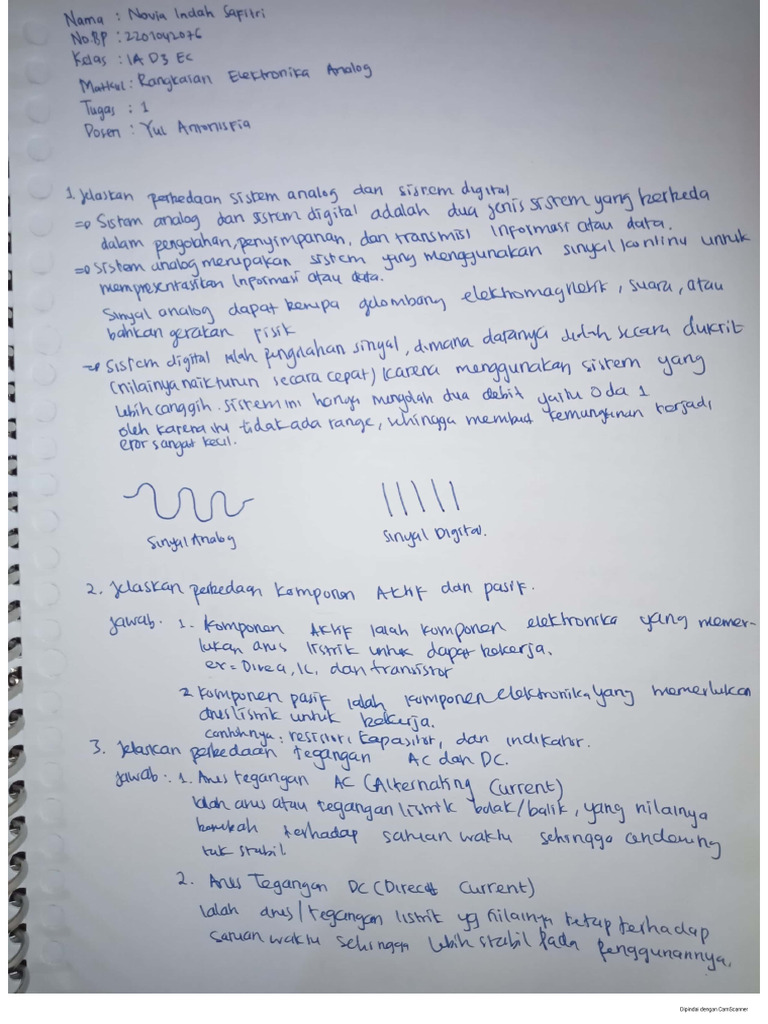 Nama : Novia Indah Safitri
No.BP : 2201042076
Kelas : 1A D3 EC
Matkul : Rangkaian Elektronika Analog
Tugas : 1
Dosen : Yul Antonisfia
1. Jelaskan perbedaan sistem analog dan sistem digital
=> Sistem analog dan sistem digital adalah dua jenis sistem yang berbeda
dalam pengolahan, penyimpanan, dan transmisi informasi atau data.
=> Sistem analog merupakan sistem yang menggunakan sinyal kontinu untuk
mempresentasikan informasi atau data.
Sinyal analog dapat berupa gelombang elektromagnetik, suara, atau
bahkan gerakan fisik
=> Sistem digital ialah pengolahan sinyal, dimana datanya sudah secara diskrit
(nilainya naik turun secara cepat) (karena menggunakan sistem yang
lebih canggih. Sistem ini hanya mengolah dua debit yaitu 0 da 1
oleh karena itu tidak ada range, sehingga membuat kemungkinan terjadi
eror sangat kecil.
Sinyal Analog
Sinyal Digital.
2. Jelaskan perbedaan komponen Aktif dan pasif.
Jawab. 1. Komponen Aktif ialah komponen elektronika yang memer-
lukan arus listrik untuk dapat bekerja.
ex = Dioda, IC, dan transistor
2 Komponen pasif ialah komponen elektronika yang memerlukan
arus listrik untuk bekerja.
Contohnya : resistor, kapasitor, dan indikator.
3. Jelaskan perbedaan tegangan AC dan DC.
Jawab : 1. Arus tegangan AC (Alternating Current)
Ialah arus atau tegangan listrik bolak/balik, yang nilainya
berubah terhadap satuan waktu sehingga cenderung
tak stabil
2. Arus Tegangan DC (Direct Current)
Ialah arus/tegangan listrik yg nilainya tetap terhadap
satuan waktu sehingga lebih stabil pada penggunannya.
Dipindai dengan CamScanner